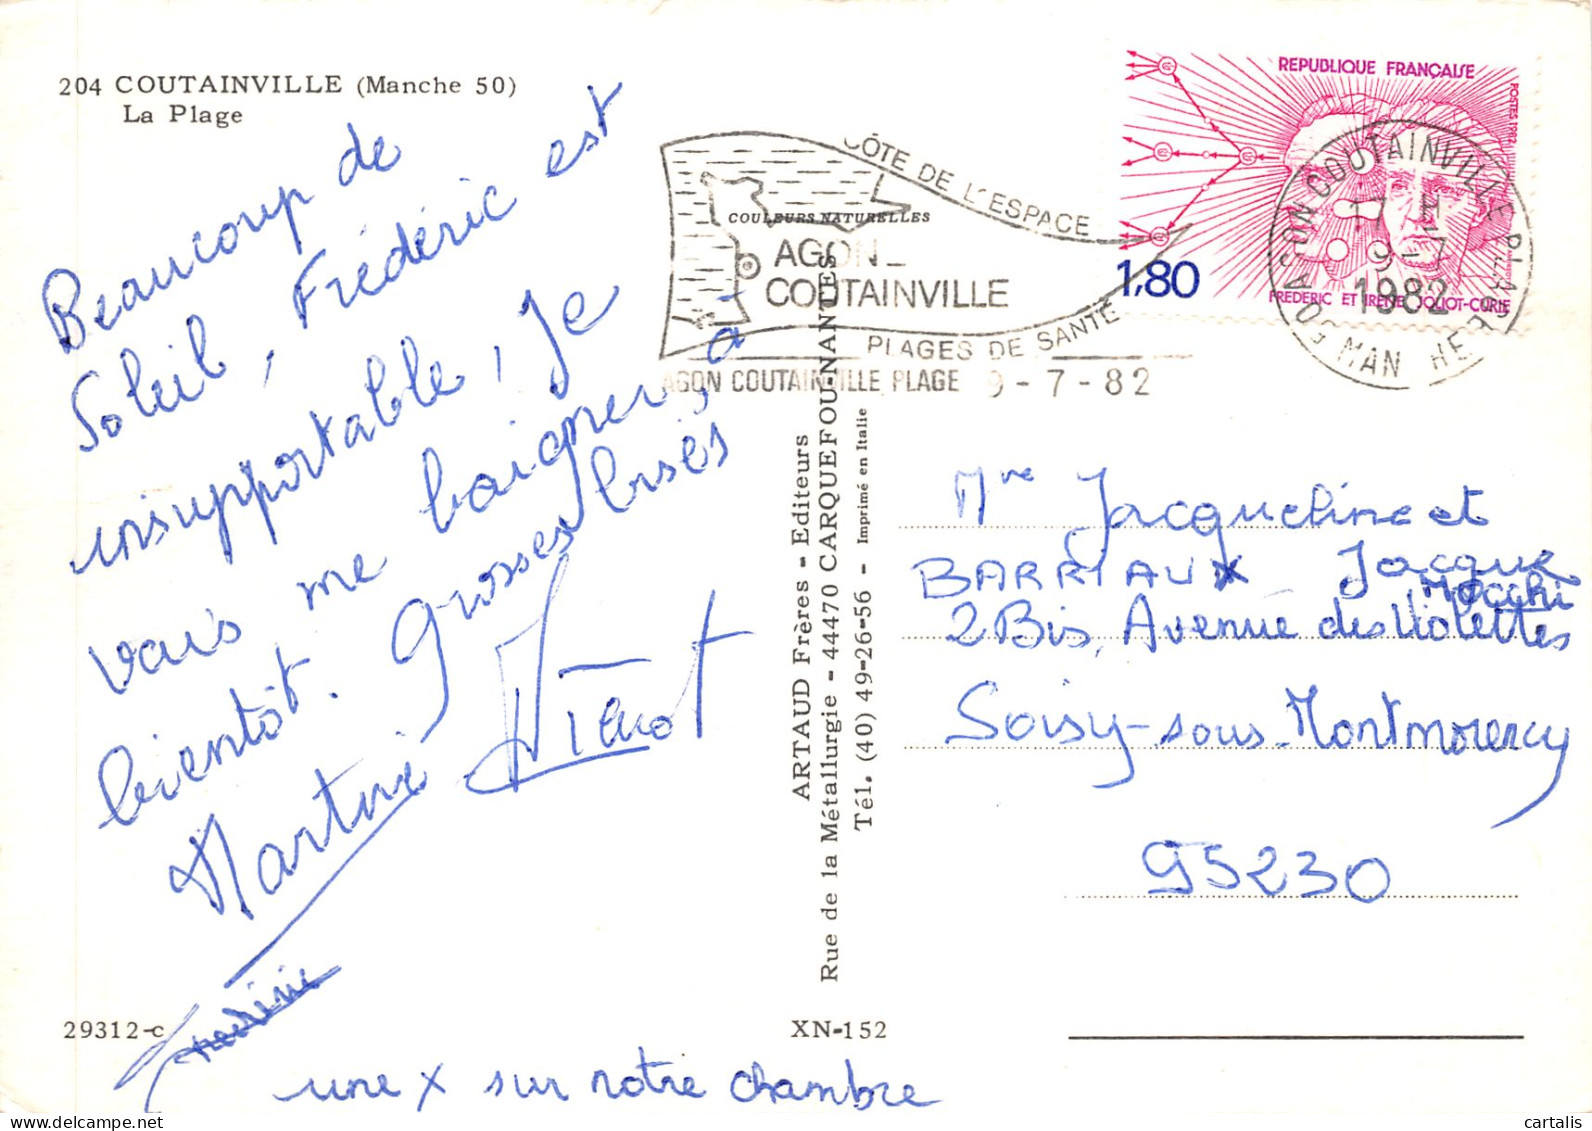 204 COUTAINVILLE (Manche 50)
La Plage
Beaucoup de
Soleil, Frédéric est
insupportable, Je
vais me baigner, a-
bientôt. Grosses bises
Martine
une x sur notre chambre
29312-c
XN-152
ARTAUD Frères - Editeurs
Rue de la Métallurgie - 44470 CARQUEFOU-NANTES
Tél. (40) 49-26-56 - Imprimé en Italie
COULEURS NATURELLES
CÔTE DE L'ESPACE
AGON_
COUTAINVILLE
PLAGES DE SANTÉ
AGON COUTAINVILLE PLAGE 9-7-82
REPUBLIQUE FRANÇAISE
POSTES 1982
1,80
FREDERIC ET IRENE JOLIOT-CURIE
AGON COUTAINVILLE PLAGE
17 H
9-7
1982
50 MANCHE
Mme Jacqueline et
BARRIAUX Jacques
Mocchi
2 Bis, Avenue des Violettes
Soisy-sous-Montmorency
95230
cartalis
www.delcampe.net